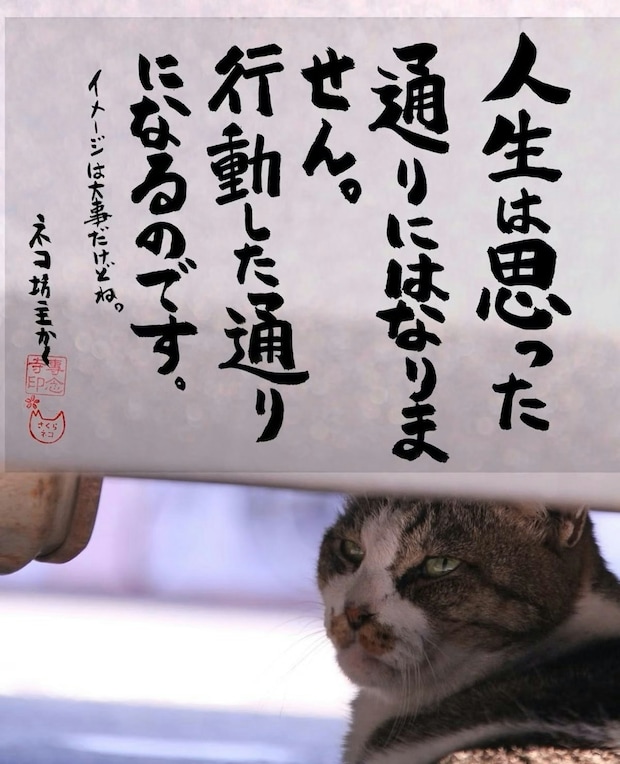 人生は思った
通りにはなりま
せん。
行動した通り
になるのです。
イメージは大事だけどね。
ネコ坊主かく
専念
寺印
さくら
ネコ